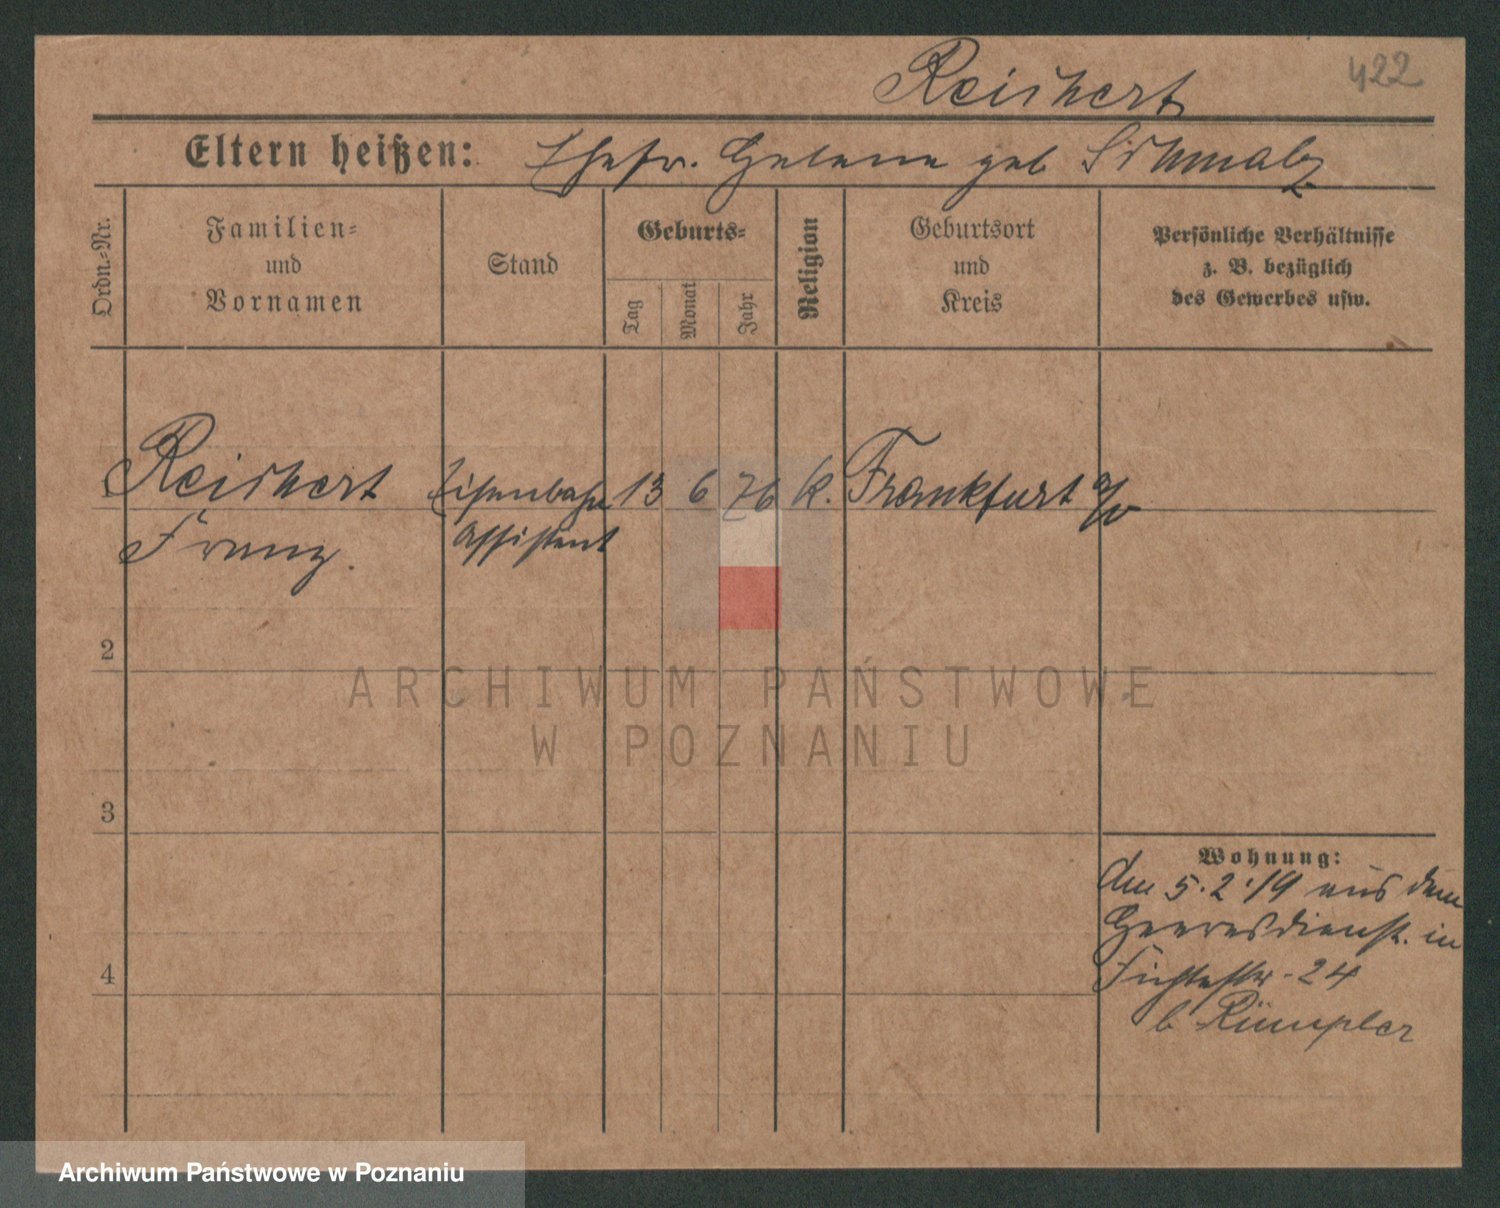 422
Reichert
Eltern heißen: Ehefr. Helene geb Schmalz
Ordn.-Nr.
Familien-
und
Vornamen
Stand
Geburts-
Tag
Monat
Jahr
Religion
Geburtsort
und
Kreis
Persönliche Verhältnisse
z. B. bezüglich
des Gewerbes usw.
1 Reichert Eisenbahn 13 6 76 k. Frankfurt a/O
Franz. Assistent
2
3
4
ARCHIWUM PAŃSTWOWE
W POZNANIU
Wohnung:
Am 5.2.19 aus dem
Heeresdienst. in
Fichtestr. 24
b Rümpler
Archiwum Państwowe w Poznaniu